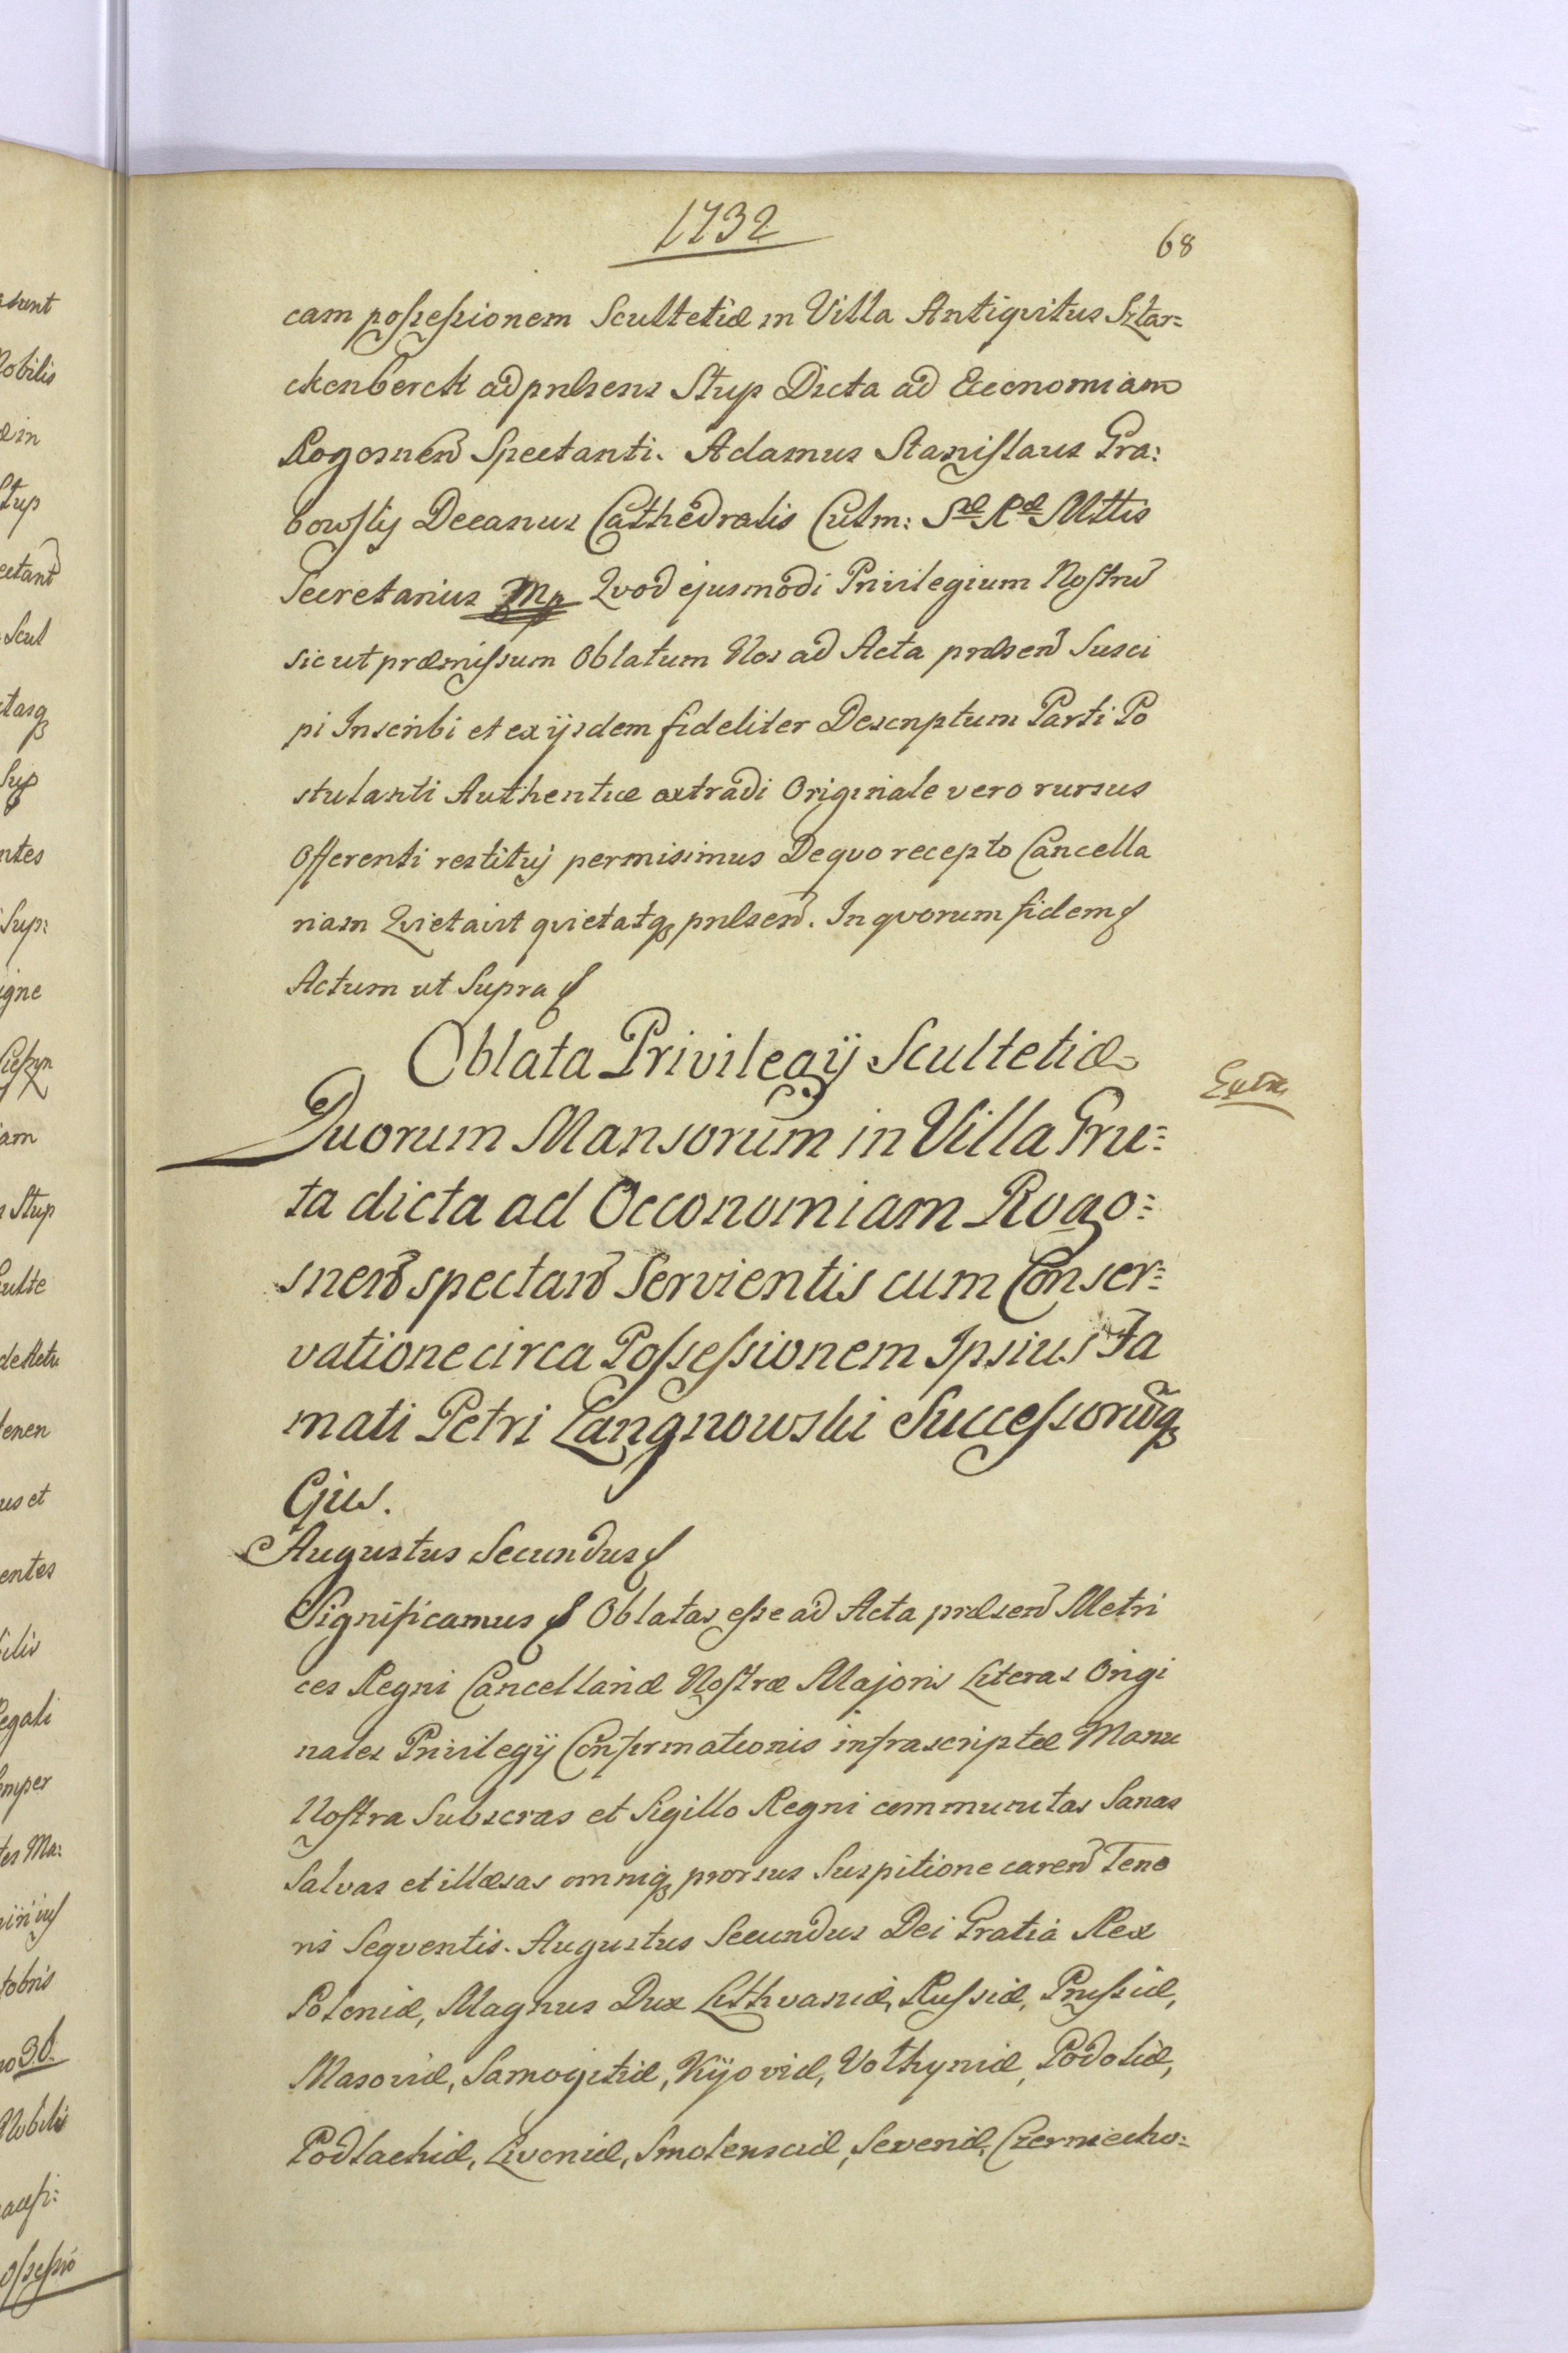 1732
68
cam possessionem Scultetiæ in Villa Antiqvitus Sztar=
ckenberck ad prælsens Stup Dicta ad Œconomiam
Rogosnen Spectanti. Adamus Stanislaus Gra:
bowsky Decanus Cathedralis Culm: Sæ Ræ Mttis
Secretarius Mp Qvod ejusmodi Privilegium Nostru
sic ut præmissum Oblatum Nos ad Acta præsen Susci
pi Inscribi et ex ijsdem fideliter Descriptum Parti Po
stulanti Authentice extradi Originale vero rursus
Offerenti restituj permisimus De qvo recepto Cancella
riam Qvietavit qvietatq præsen. In qvorum fidem
Actum ut Supra
Oblata Privilegij Scultetiæ
Extr.
Duorum Mansorum in Villa Gru=
ta dicta ad Oeconomiam Rogo=
snen spectan Servientis cum Conser=
vatione circa Possessionem Ipsius Fa
mati Petri Langnowski Successorūq
Ejus.
Augustus Secundus
Significamus Oblatas esse ad Acta præsen Metri
ces Regni Cancellariæ Nostræ Majoris Literas Origi
nales Privilegij Confirmationis infrascriptæ Manu
Nostra Subscras et Sigillo Regni communitas Sanas
Salvas et illæsas omniq prorsus Suspitione caren Teno
ris Seqventis. Augustus Secundus Dei Gratia Rex
Poloniæ, Magnus Dux Lithvaniæ, Russiæ, Prussiæ,
Masoviæ, Samogitiæ, Kijoviæ, Volhyniæ, Podoliæ,
Podlachiæ, Livoniæ, Smolensciæ, Severiæ, Czerniecho=